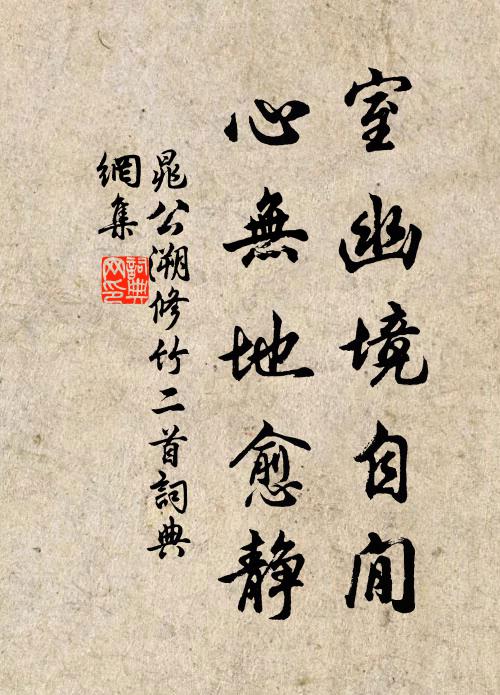 室幽境自閒
心無地愈静
晁公溯修竹二首詞典
網集
詞典網印